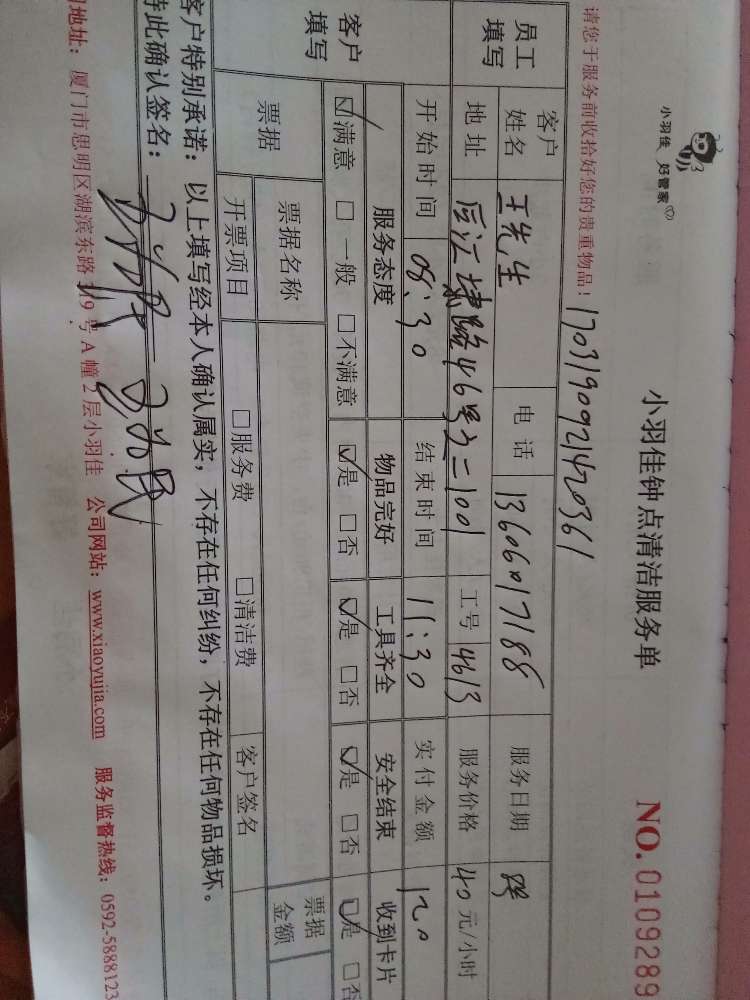 小羽佳 好管家
小羽佳钟点清洁服务单
NO. 0109289
请您于服务前收拾好您的贵重物品！ 1703190921420361
员工填写 客户姓名 王先生 电话 13606017188 服务日期
地址 后江埭路46号之二1001 工号 4613 服务价格 40 元/小时
开始时间 08:30 结束时间 11:30 实付金额 120
客户填写 服务态度 物品完好 工具齐全 安全结束 收到卡片
☑满意 □一般 □不满意 ☑是 □否 ☑是 □否 ☑是 □否 ☑是 □否
票据 票据名称 票据金额
开票项目 □服务费 □清洁费 客户签名
客户特别承诺：以上填写经本人确认属实，不存在任何纠纷，不存在任何物品损坏。
特此确认签名：
司地址：厦门市思明区湖滨东路319号A幢2层小羽佳 公司网站：www.xiaoyujia.com 服务监督热线：0592-5888123